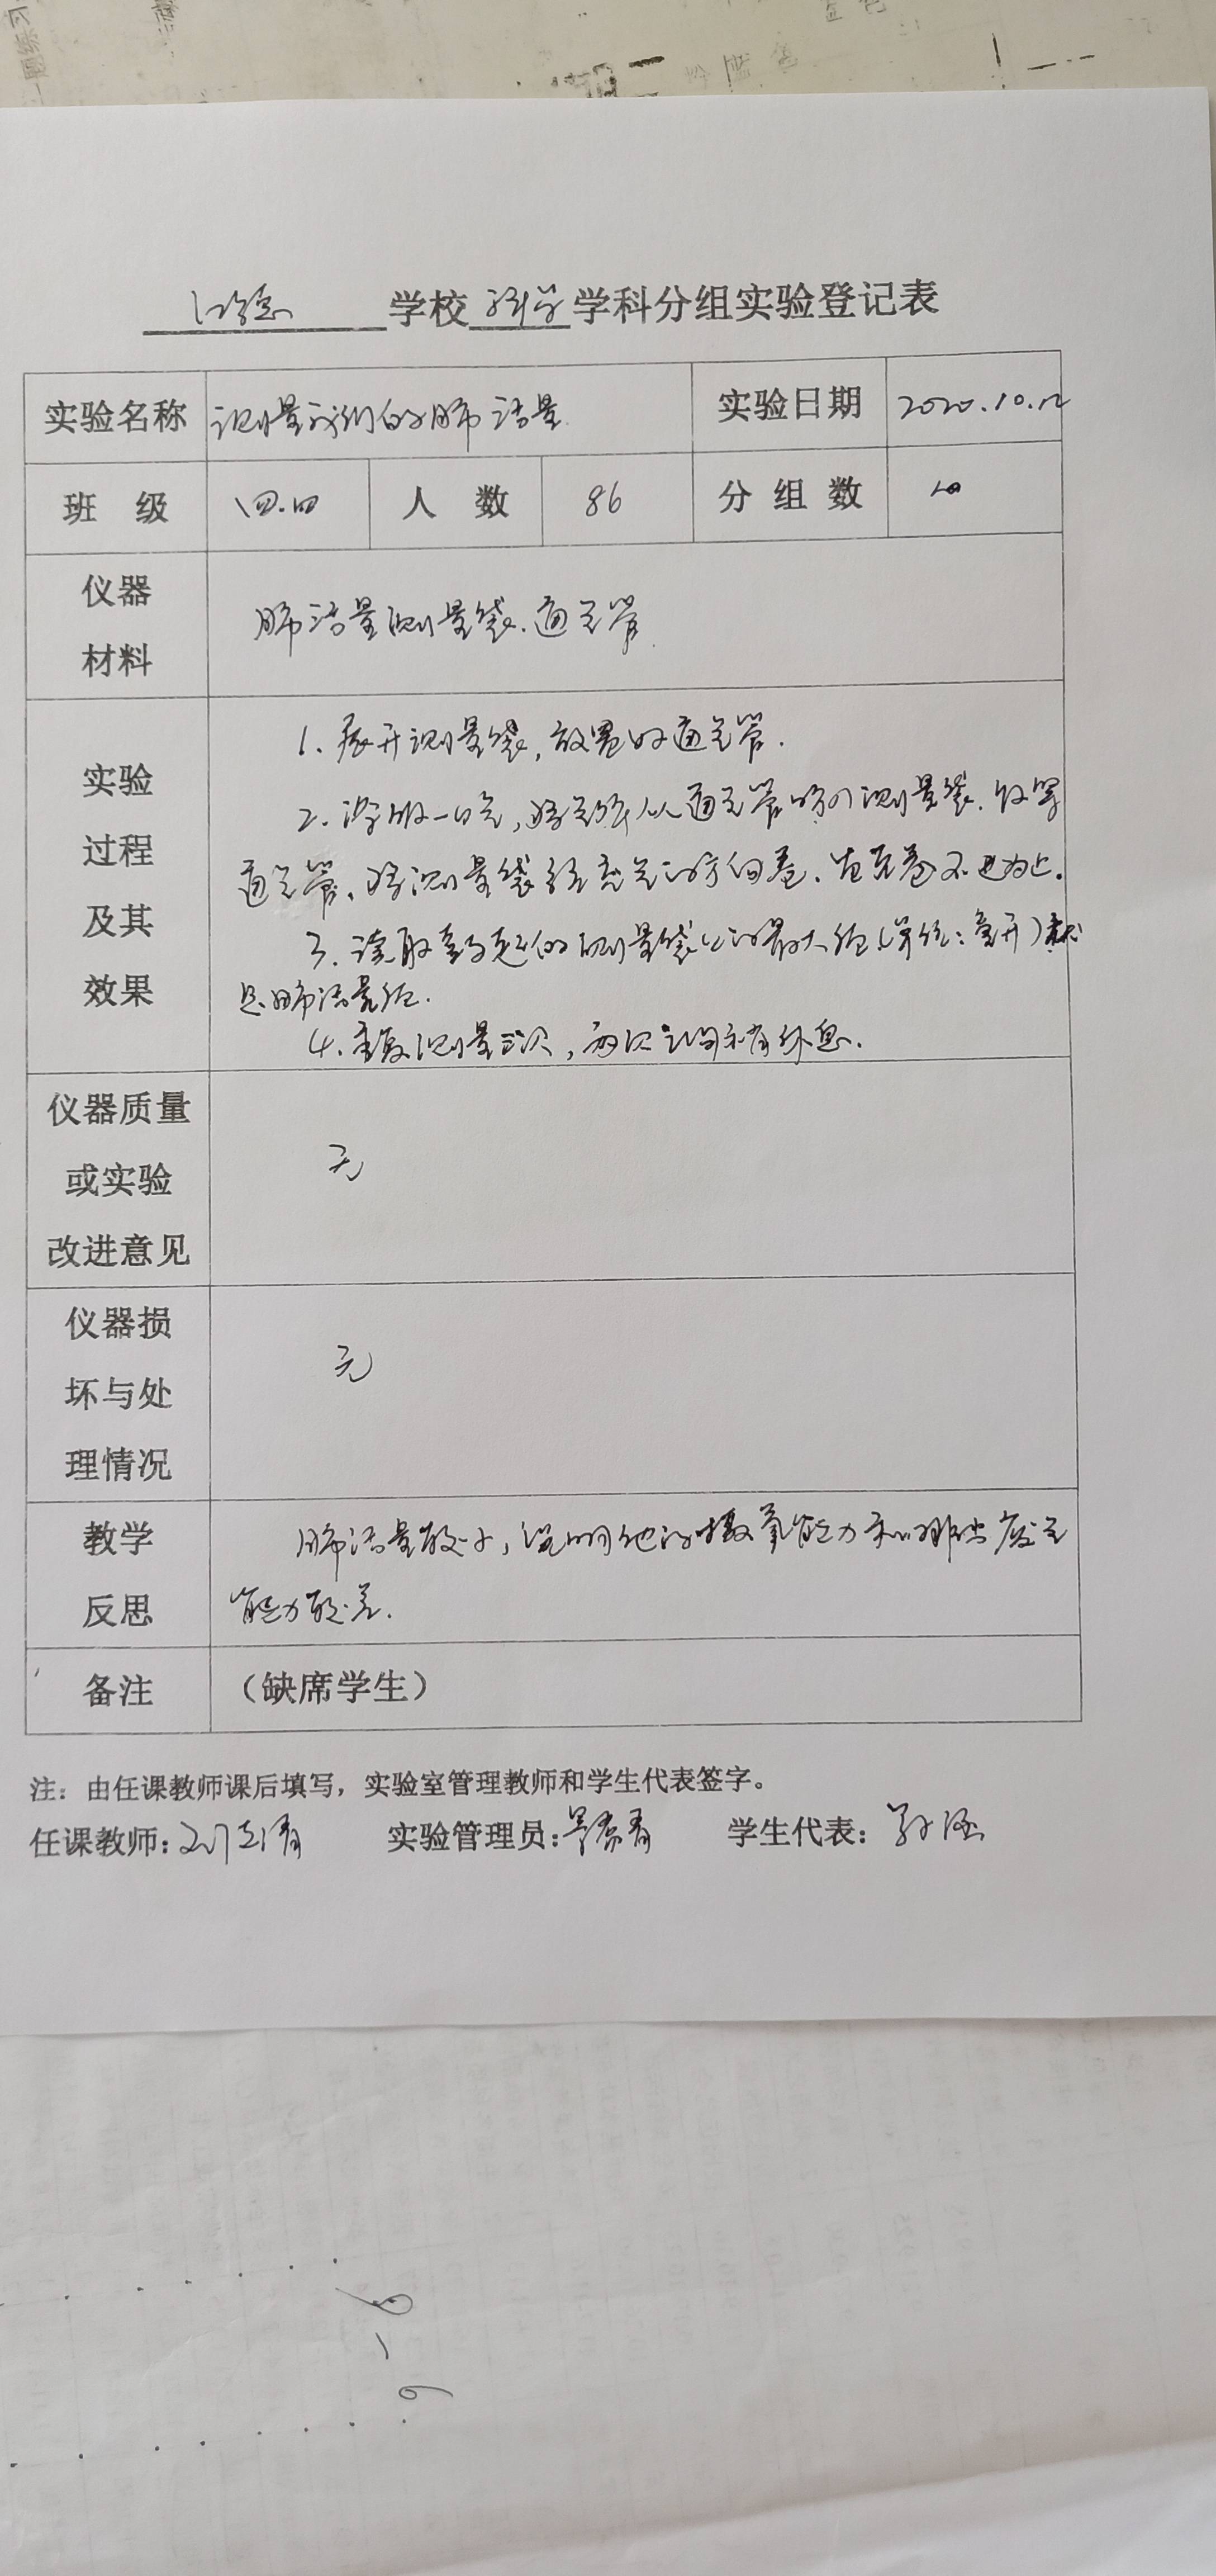 学校 科学 学科分组实验登记表
实验名称 测量我们的肺活量 实验日期 2020.10.12
班 级 四.四 人 数 86 分组数
仪器
材料
肺活量测量袋.通气管.
实验
过程
及其
效果
1. 展开测量袋,放置好通气管.
2. 深吸一口气,将气体从通气管吹入测量袋.
通气管,将测量袋 充气的方向卷.直至卷不进为止.
3. 读取 的测量袋上的最大值(单位:毫升)就
是肺活量值.
4. 重复测量三次,两次之间稍有休息.
仪器质量
或实验
改进意见
无
仪器损
坏与处
理情况
无
教学
反思
肺活量较小,说明他的摄氧能力和排出废气
能力较差.
备注 (缺席学生)
注:由任课教师课后填写,实验室管理教师和学生代表签字。
任课教师: 实验管理员: 学生代表: